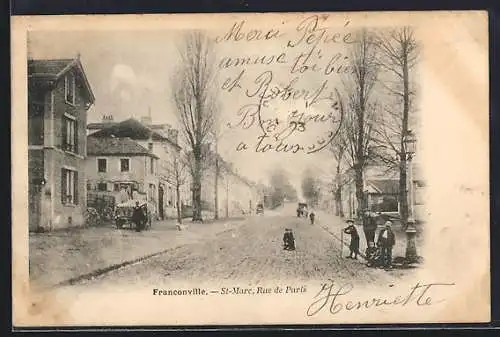 Merci Pépée
amuse toi bien
et Robert
Bonjour
à tous
Franconville. — St-Marc, Rue de Paris
Henriette